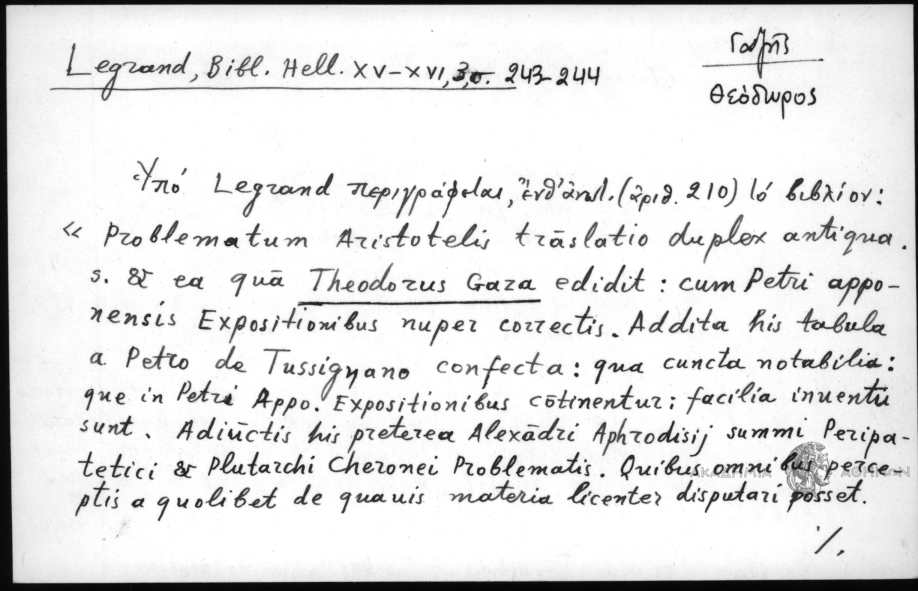 Legrand, Bibl. Hell. XV-XVI, 3, σ. 243-244
Γαζῆς
Θεόδωρος
Ὑπό Legrand περιγράφεται, ἔνθ' ἀνωτ. (ἀριθ. 210) τό βιβλίον:
« Problematum Aristotelis trāslatio duplex antiqua.
s. & ea quā Theodorus Gaza edidit : cum Petri appo-
nensis Expositionibus nuper correctis. Addita his tabula
a Petro de Tussignano confecta : qua cuncta notabilia :
que in Petri Appo. Expositionibus cōtinentur ; facilia inuentu
sunt. Adiūctis his preterea Alexādri Aphrodisij summi Peripa-
tetici & Plutarchi Cheronei Problematis. Quibus omnibus perce-
ptis a quolibet de quauis materia licenter disputari posset.
ΑΚΑΔΗΜΙΑ ΑΘΗΝΩΝ
./.